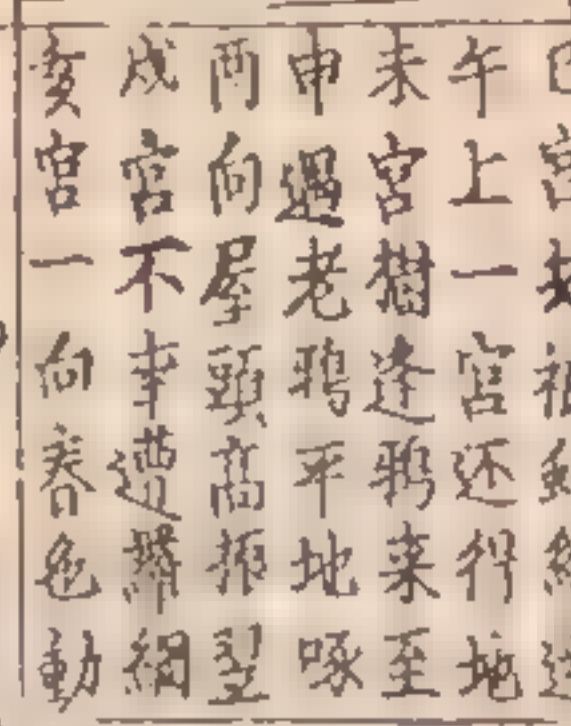 午上一宮还得地
未宮樹逢鴉来至
申過老鴉平地啄
酉向屋頭高振翌
戌宮不幸遭羅網
亥宮一向春色動